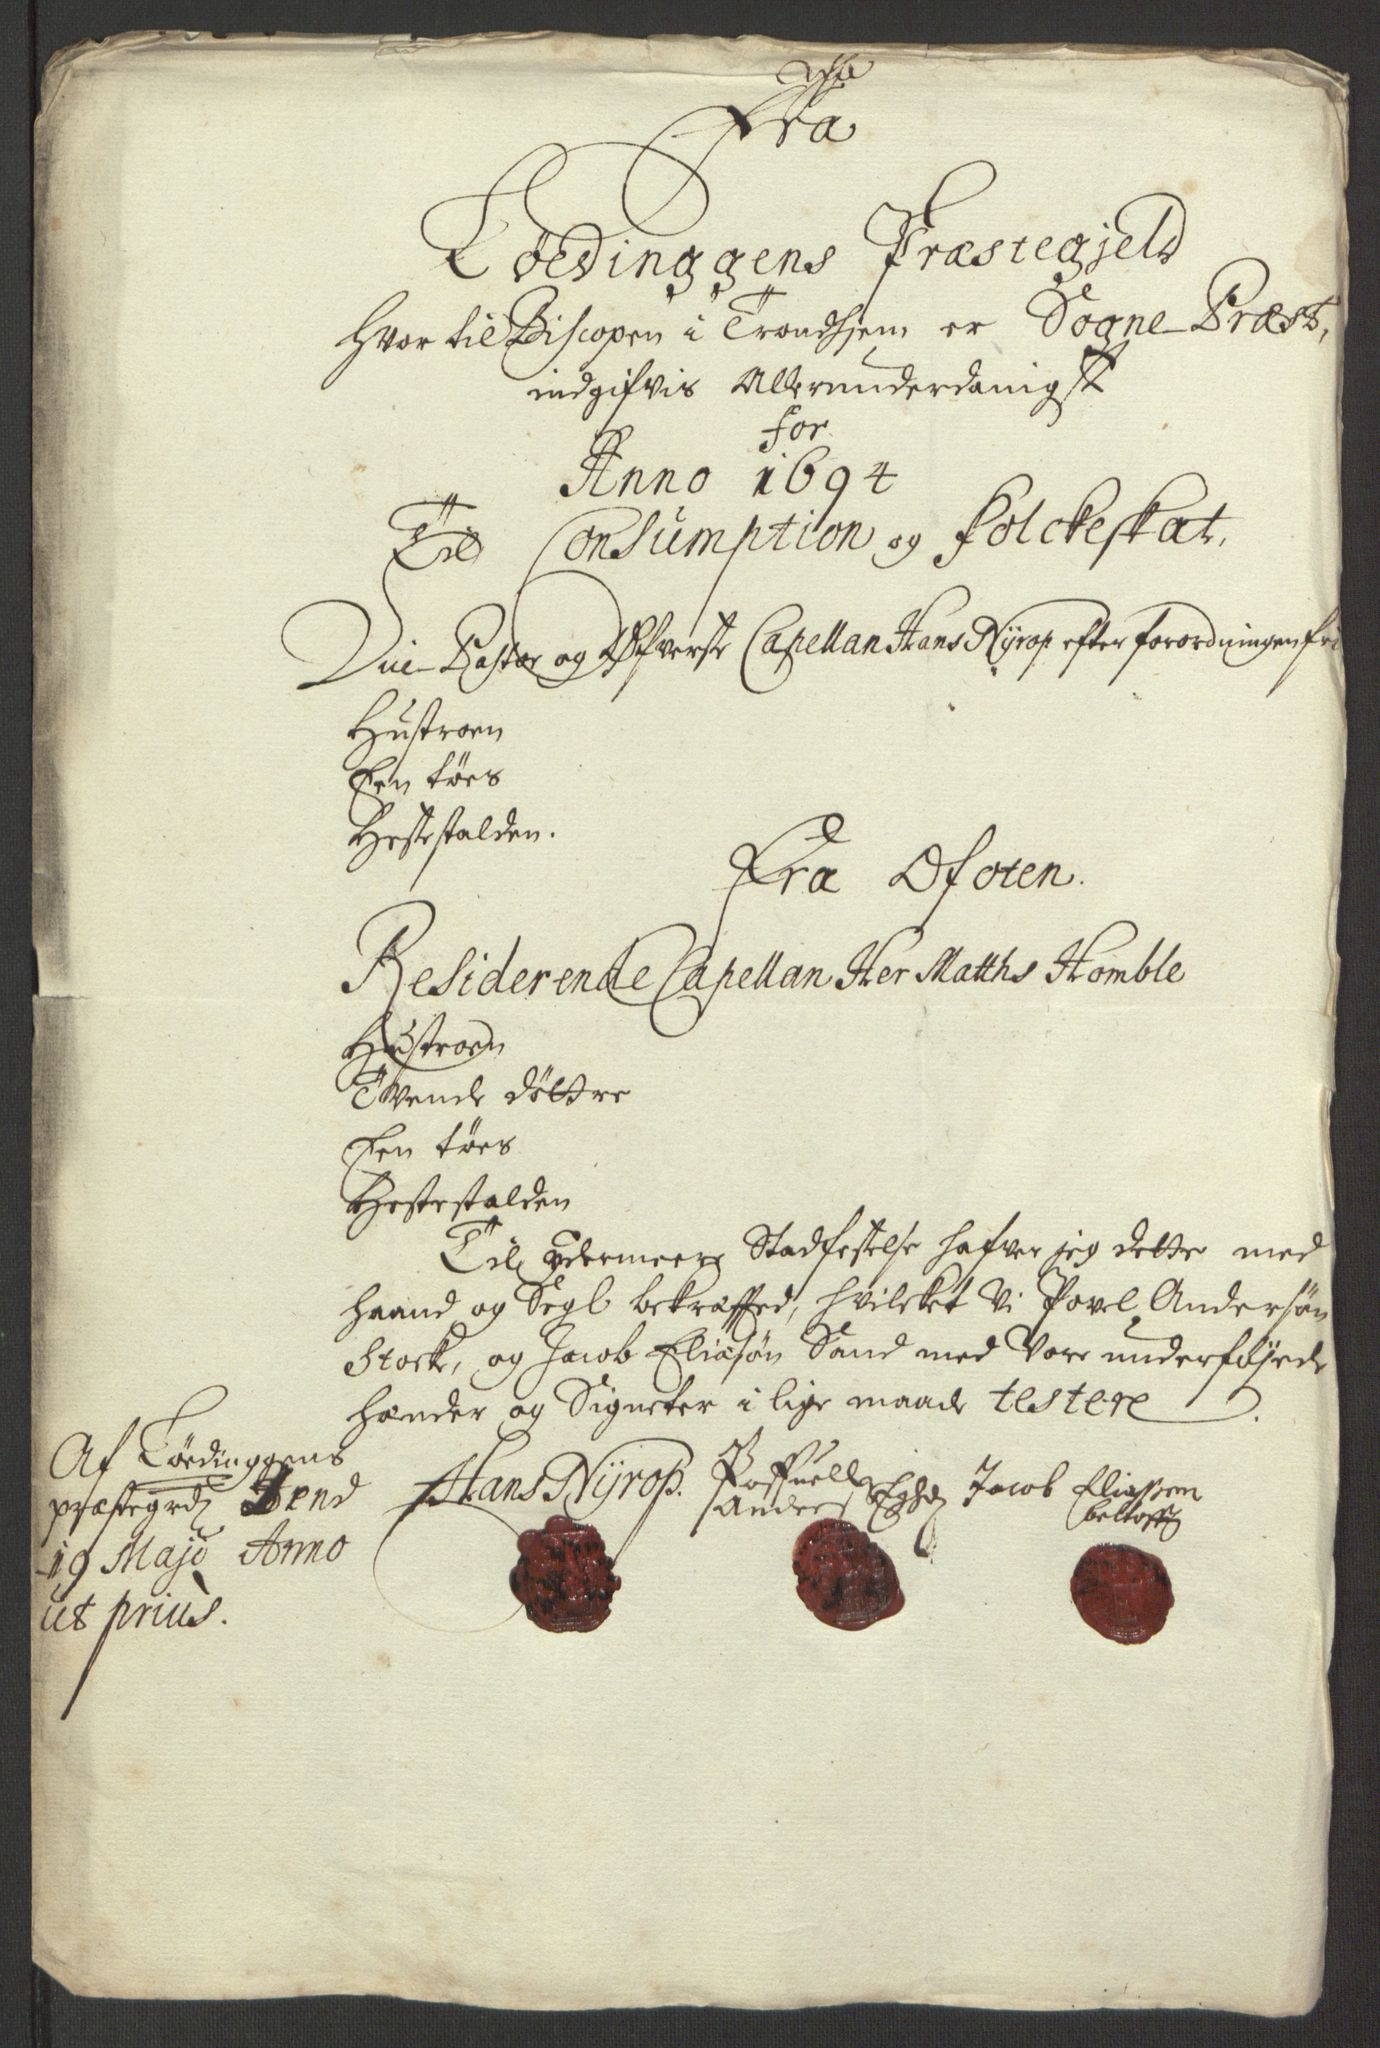 Fra
Løedinggens Præstegjeld
Hvor til Biscopen i Trondhjem er Sogne-Præst,
indgifvis Allerunderdanigst
for
Anno 1694
Til Consumption og Folckeskat,
Vice-Pastor og Øfverste Capellan Hans Nÿrop efter forordningen fri
Hustroen
Een tøes
Hestestalden.
Fra Ofoten.
Residerende Capellan Her Matths Homble
Hustroen
Tvende døttre
Een tøes
Hestestalden
Til ydermeere Stadfestelse hafver jeg dette med
haand og Segl bekræfted, hvilcket Vi Povel Andersøn
Stock, og Jacob Eliasøn Sand med Vore underføjede
hænder og Signeter i lige maade testere.
Af Løedinggens
præstegrd Dend
19 Maji Anno
ut prius.
Hans Nÿrop.
Anders
Jacob Eliassen